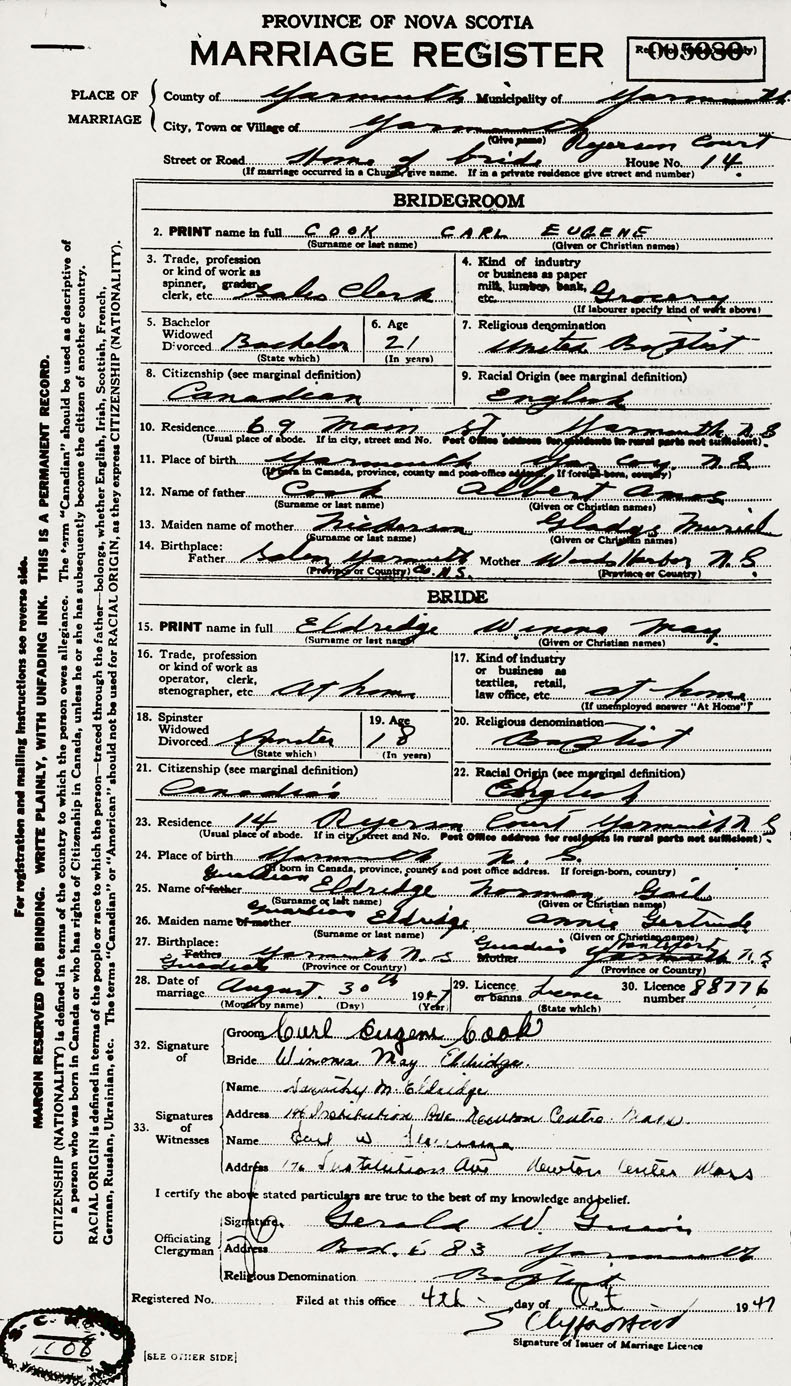 PROVINCE OF NOVA SCOTIA
MARRIAGE REGISTER
005080
PLACE OF MARRIAGE
County of Yarmouth Municipality of Yarmouth
City, Town or Village of Yarmouth
(Give name) Ryerson Court
Street or Road Home of bride House No. 14
(If marriage occurred in a Church give name. If in a private residence give street and number)
BRIDEGROOM
2. PRINT name in full COOK CARL EUGENE
(Surname or last name) (Given or Christian names)
3. Trade, profession or kind of work as spinner, grader, clerk, etc. Sales Clerk
4. Kind of industry or business as paper mill, lumber, bank, etc. Grocery
(If labourer specify kind of work above)
5. Bachelor Widowed Divorced Bachelor
(State which)
6. Age 21
(In years)
7. Religious denomination
United Baptist
8. Citizenship (see marginal definition)
Canadian
9. Racial Origin (see marginal definition)
English
10. Residence 69 Main St Yarmouth N.S
(Usual place of abode. If in city, street and No. Post Office address for residents in rural parts not sufficient).
11. Place of birth Yarmouth Yar Coy N.S
(If born in Canada, province, county and post-office address. If foreign-born, country)
12. Name of father Cook Albert Amos
(Surname or last name) (Given or Christian names)
13. Maiden name of mother Nickerson Gladys Muriel
(Surname or last name) (Given or Christian names)
14. Birthplace: Father Salem Yarmouth Co. N.S. Mother Woods Harbor N.S.
(Province or Country) (Province or Country)
BRIDE
15. PRINT name in full Eldridge Winona May
(Surname or last name) (Given or Christian names)
16. Trade, profession or kind of work as operator, clerk, stenographer, etc. At home
17. Kind of industry or business as textiles, retail, law office, etc. at home
(If unemployed answer "At Home")
18. Spinster Widowed Divorced Spinster
(State which)
19. Age 18
(In years)
20. Religious denomination
Baptist
21. Citizenship (see marginal definition)
22. Racial Origin (see marginal definition)
English
23. Residence 14 Ryerson Court Yarmouth N S
(Usual place of abode. If in city, street and No. Post Office address for residents in rural parts not sufficient).
24. Place of birth Yarmouth N. S.
(If born in Canada, province, county and post office address. If foreign-born, country)
Guardian
25. Name of father Eldridge Norman Gail
(Surname or last name) (Given or Christian names)
Guardian
26. Maiden name of mother Eldridge Annie Gertrude
(Surname or last name) (Given or Christian names)
27. Birthplace: Father Yarmouth N.S Mother Yarmouth N.S
(Province or Country) (Province or Country)
28. Date of marriage August 30th 1947
(Month by name) (Day) (Year)
29. Licence or banns Licence
(State which)
30. Licence number 88776
32. Signature of
Groom Carl Eugene Cook
Bride Winona May Eldridge.
33. Signatures of Witnesses
Name Dorothy M. Eldridge
Address Institution Ave Newton Centre. Mass.
Name W
Address 176 Institution Ave Newton Center Mass
I certify the above stated particulars are true to the best of my knowledge and belief.
Officiating Clergyman
Signature Gerald W.
Address Box 683 Yarmouth
Religious Denomination Baptist
Registered No. Filed at this office 4th day of Oct 1947
Signature of Issuer of Marriage Licence
[SEE OTHER SIDE]
For registration and mailing instructions see reverse side.
MARGIN RESERVED FOR BINDING. WRITE PLAINLY, WITH UNFADING INK. THIS IS A PERMANENT RECORD.
CITIZENSHIP (NATIONALITY) is defined in terms of the country to which the person owes allegiance. The term "Canadian" should be used as descriptive of
a person who was born in Canada or who has rights of Citizenship in Canada, unless he or she has subsequently become the citizen of another country.
RACIAL ORIGIN is defined in terms of the people or race to which the person—traced through the father—belongs, whether English, Irish, Scottish, French,
German, Russian, Ukrainian, etc. The terms "Canadian" or "American" should not be used for RACIAL ORIGIN, as they express CITIZENSHIP (NATIONALITY).